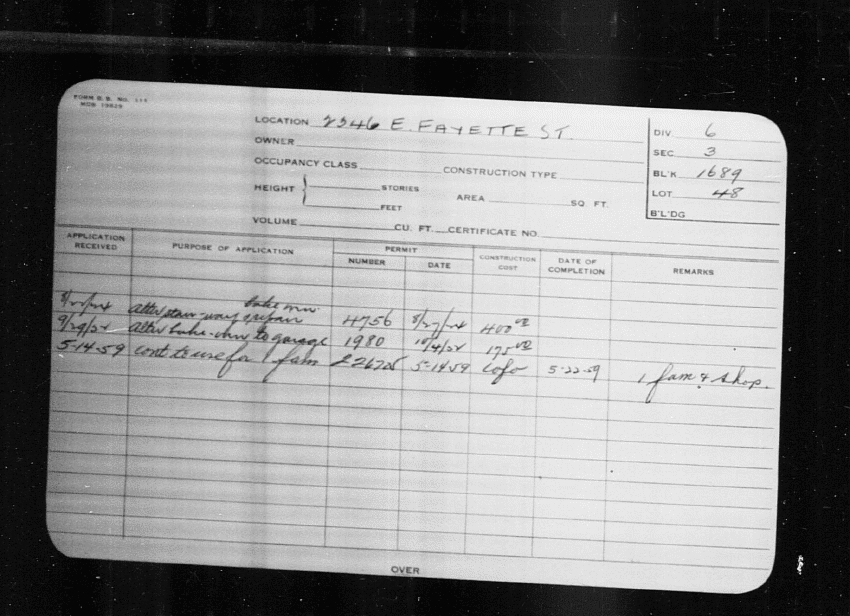 FORM B. B. No. 115
MDB 19829
LOCATION 2346 E. FAYETTE ST.
DIV. 6
OWNER
SEC. 3
OCCUPANCY CLASS CONSTRUCTION TYPE
BL'K 1689
HEIGHT STORIES AREA SQ. FT.
LOT 48
FEET
B'L'DG
VOLUME CU. FT. CERTIFICATE NO.
APPLICATION RECEIVED PURPOSE OF APPLICATION PERMIT CONSTRUCTION COST DATE OF COMPLETION REMARKS
NUMBER DATE
bake ovn.
alter stair-way & repair 4756 400 00
9/29/24 alter bake-ovn to garage 1980 10/4/24 175 00
5-14-59 cont to use for 1 fam 5-14-59 Cofo 5-22-59 1 fam & shop.
OVER